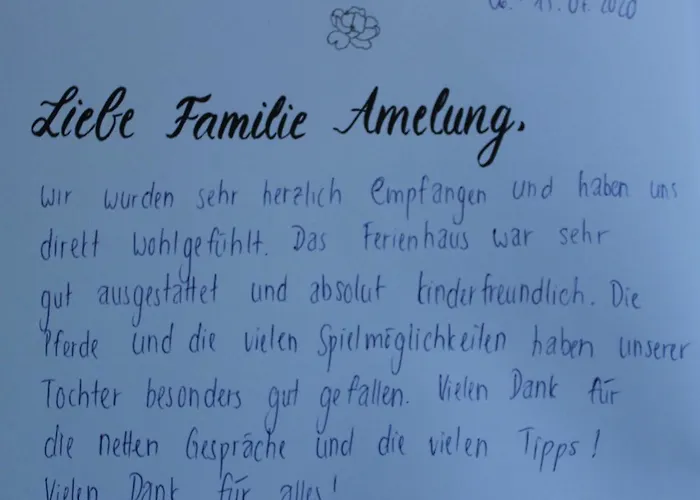 11.07.2020
Liebe Familie Amelung,
wir wurden sehr herzlich empfangen und haben uns
direkt wohlgefühlt. Das Ferienhaus war sehr
gut ausgestattet und absolut kinderfreundlich. Die
Pferde und die vielen Spielmöglichkeiten haben unserer
Tochter besonders gut gefallen. Vielen Dank für
die netten Gespräche und die vielen Tipps!
Vielen Dank für alles!